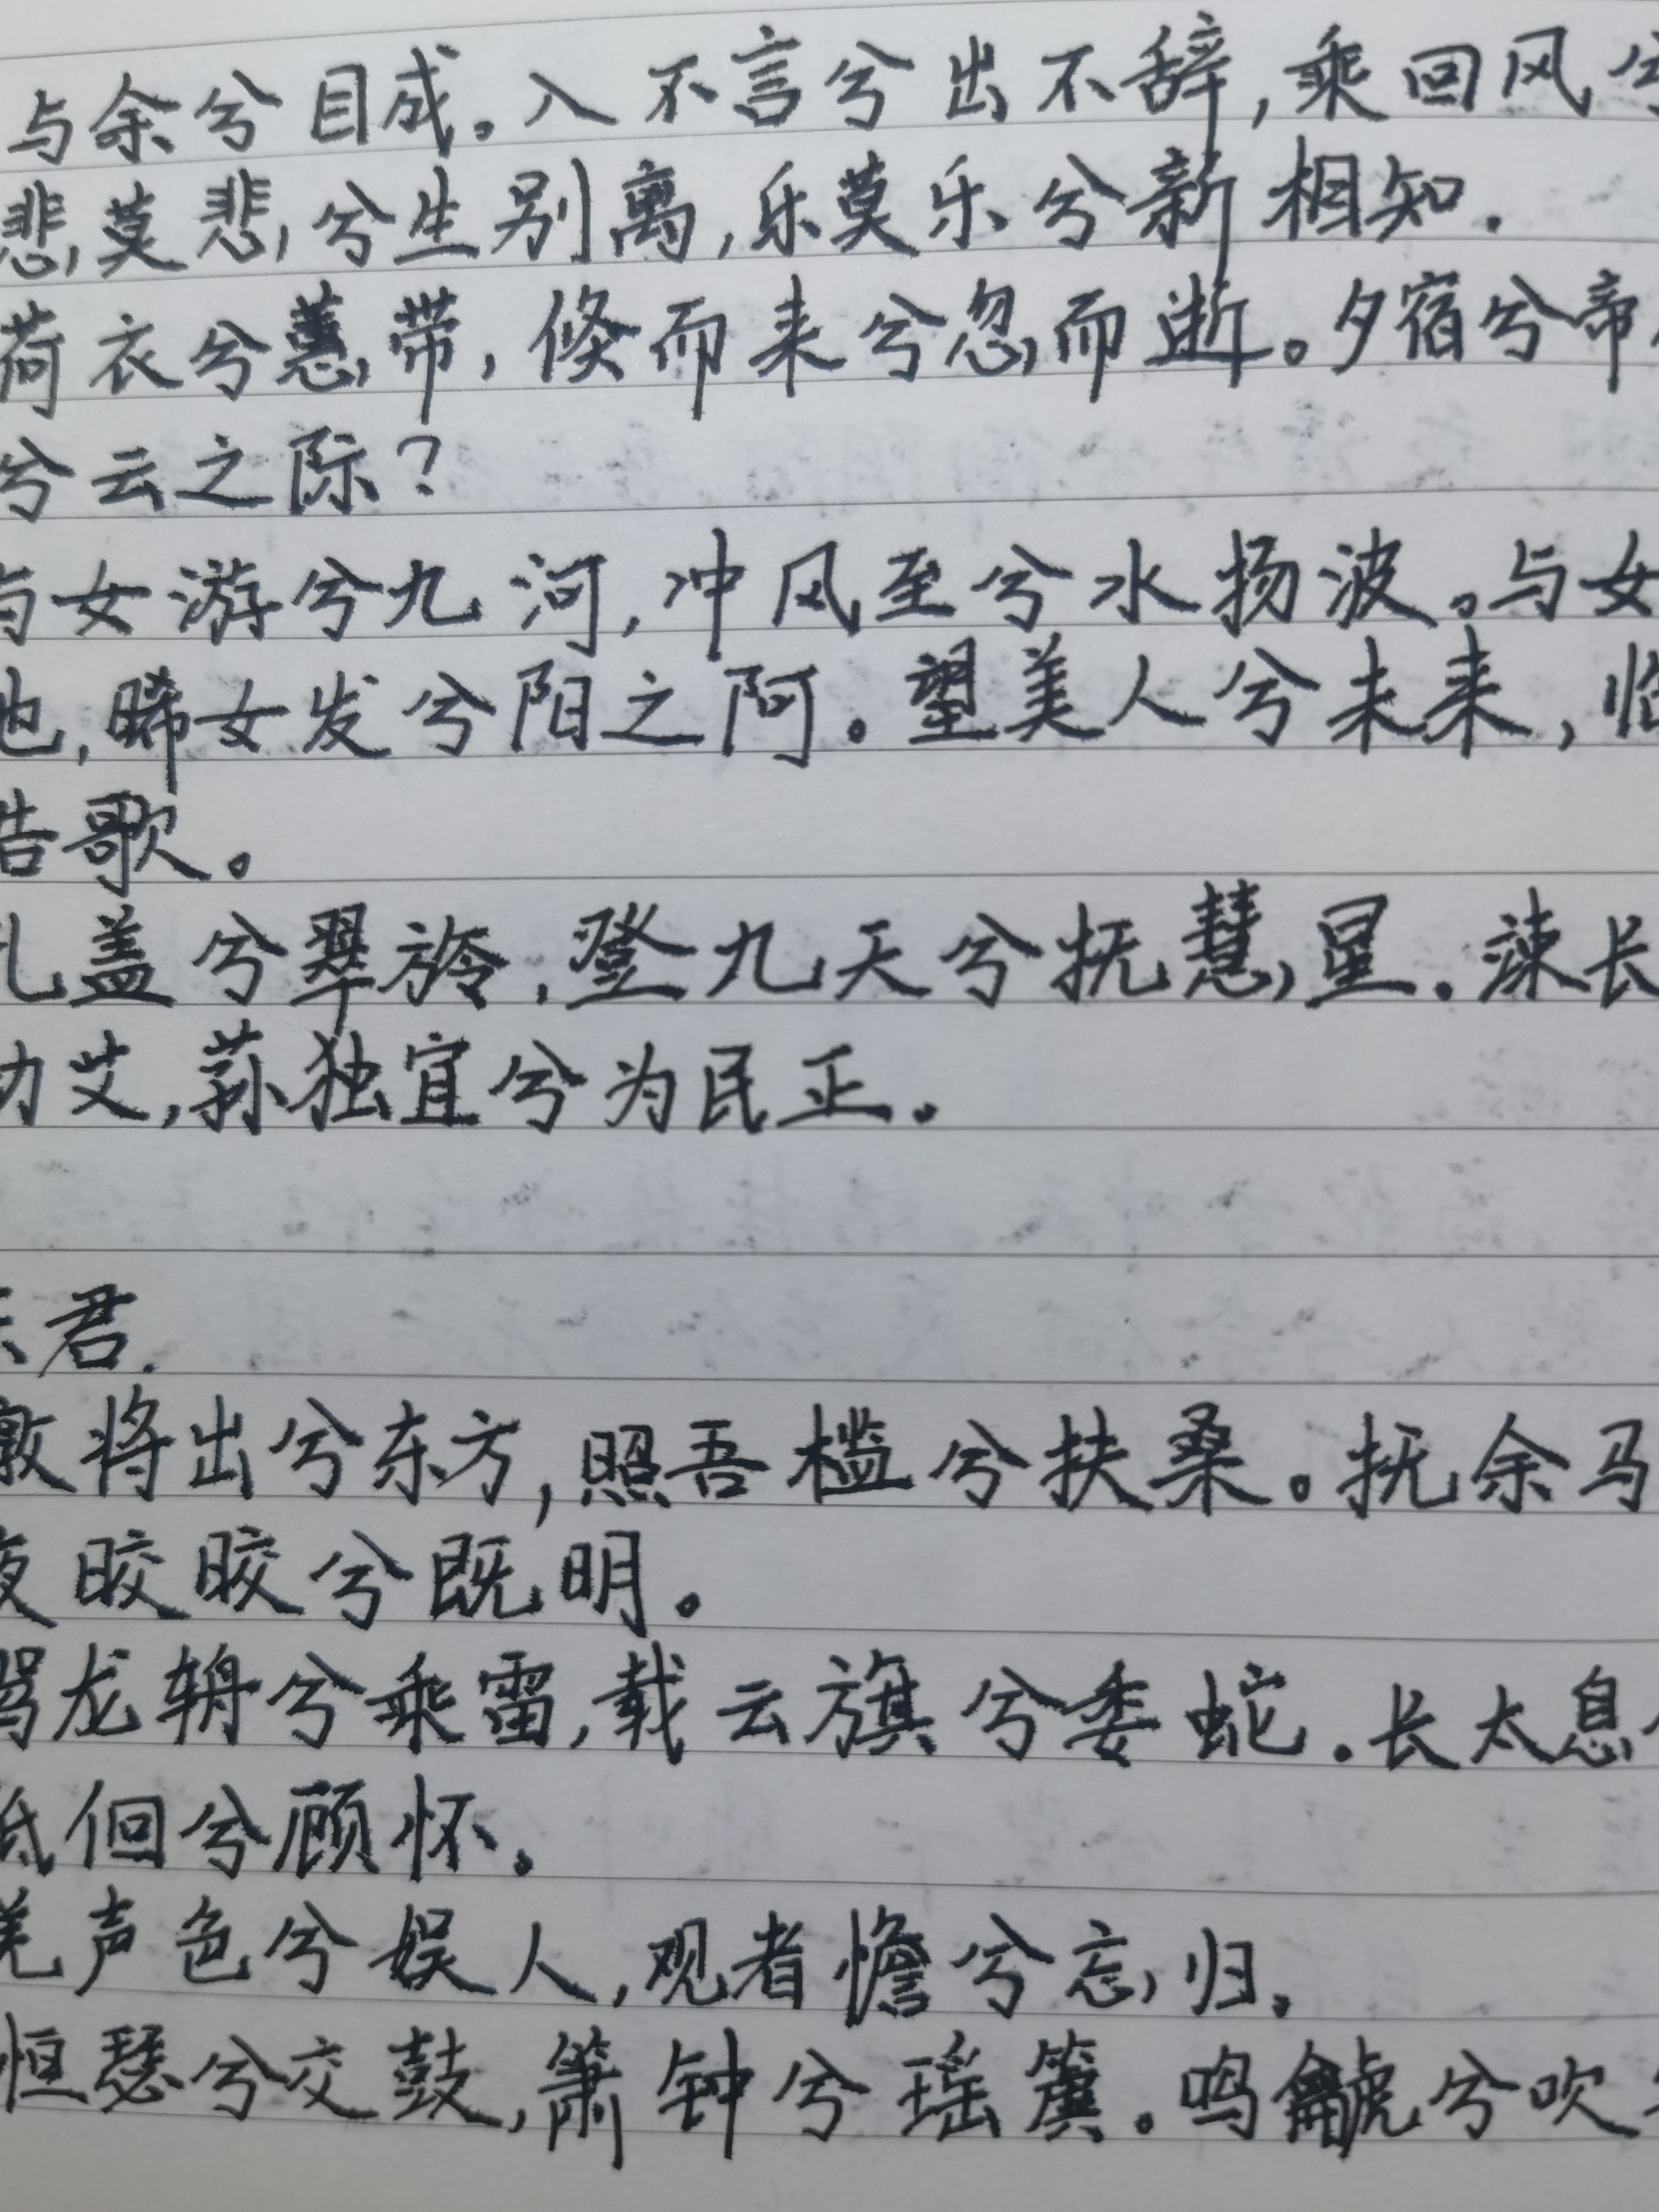 与余兮目成。入不言兮出不辞,乘回风兮
悲莫悲兮生别离,乐莫乐兮新相知.
荷衣兮蕙带,倏而来兮忽而逝。夕宿兮帝
兮云之际?
与女游兮九河,冲风至兮水扬波。与女
池,晞女发兮阳之阿。望美人兮未来,临
浩歌。
孔盖兮翠旍,登九天兮抚慧星.竦长
幼艾,荪独宜兮为民正。
东君.
暾将出兮东方,照吾槛兮扶桑。抚余马
夜晈晈兮既明。
驾龙辀兮乘雷,载云旗兮委蛇.长太息
低佪兮顾怀。
羌声色兮娱人,观者憺兮忘归。
恒瑟兮交鼓,箫钟兮瑶簴。鸣龥兮吹